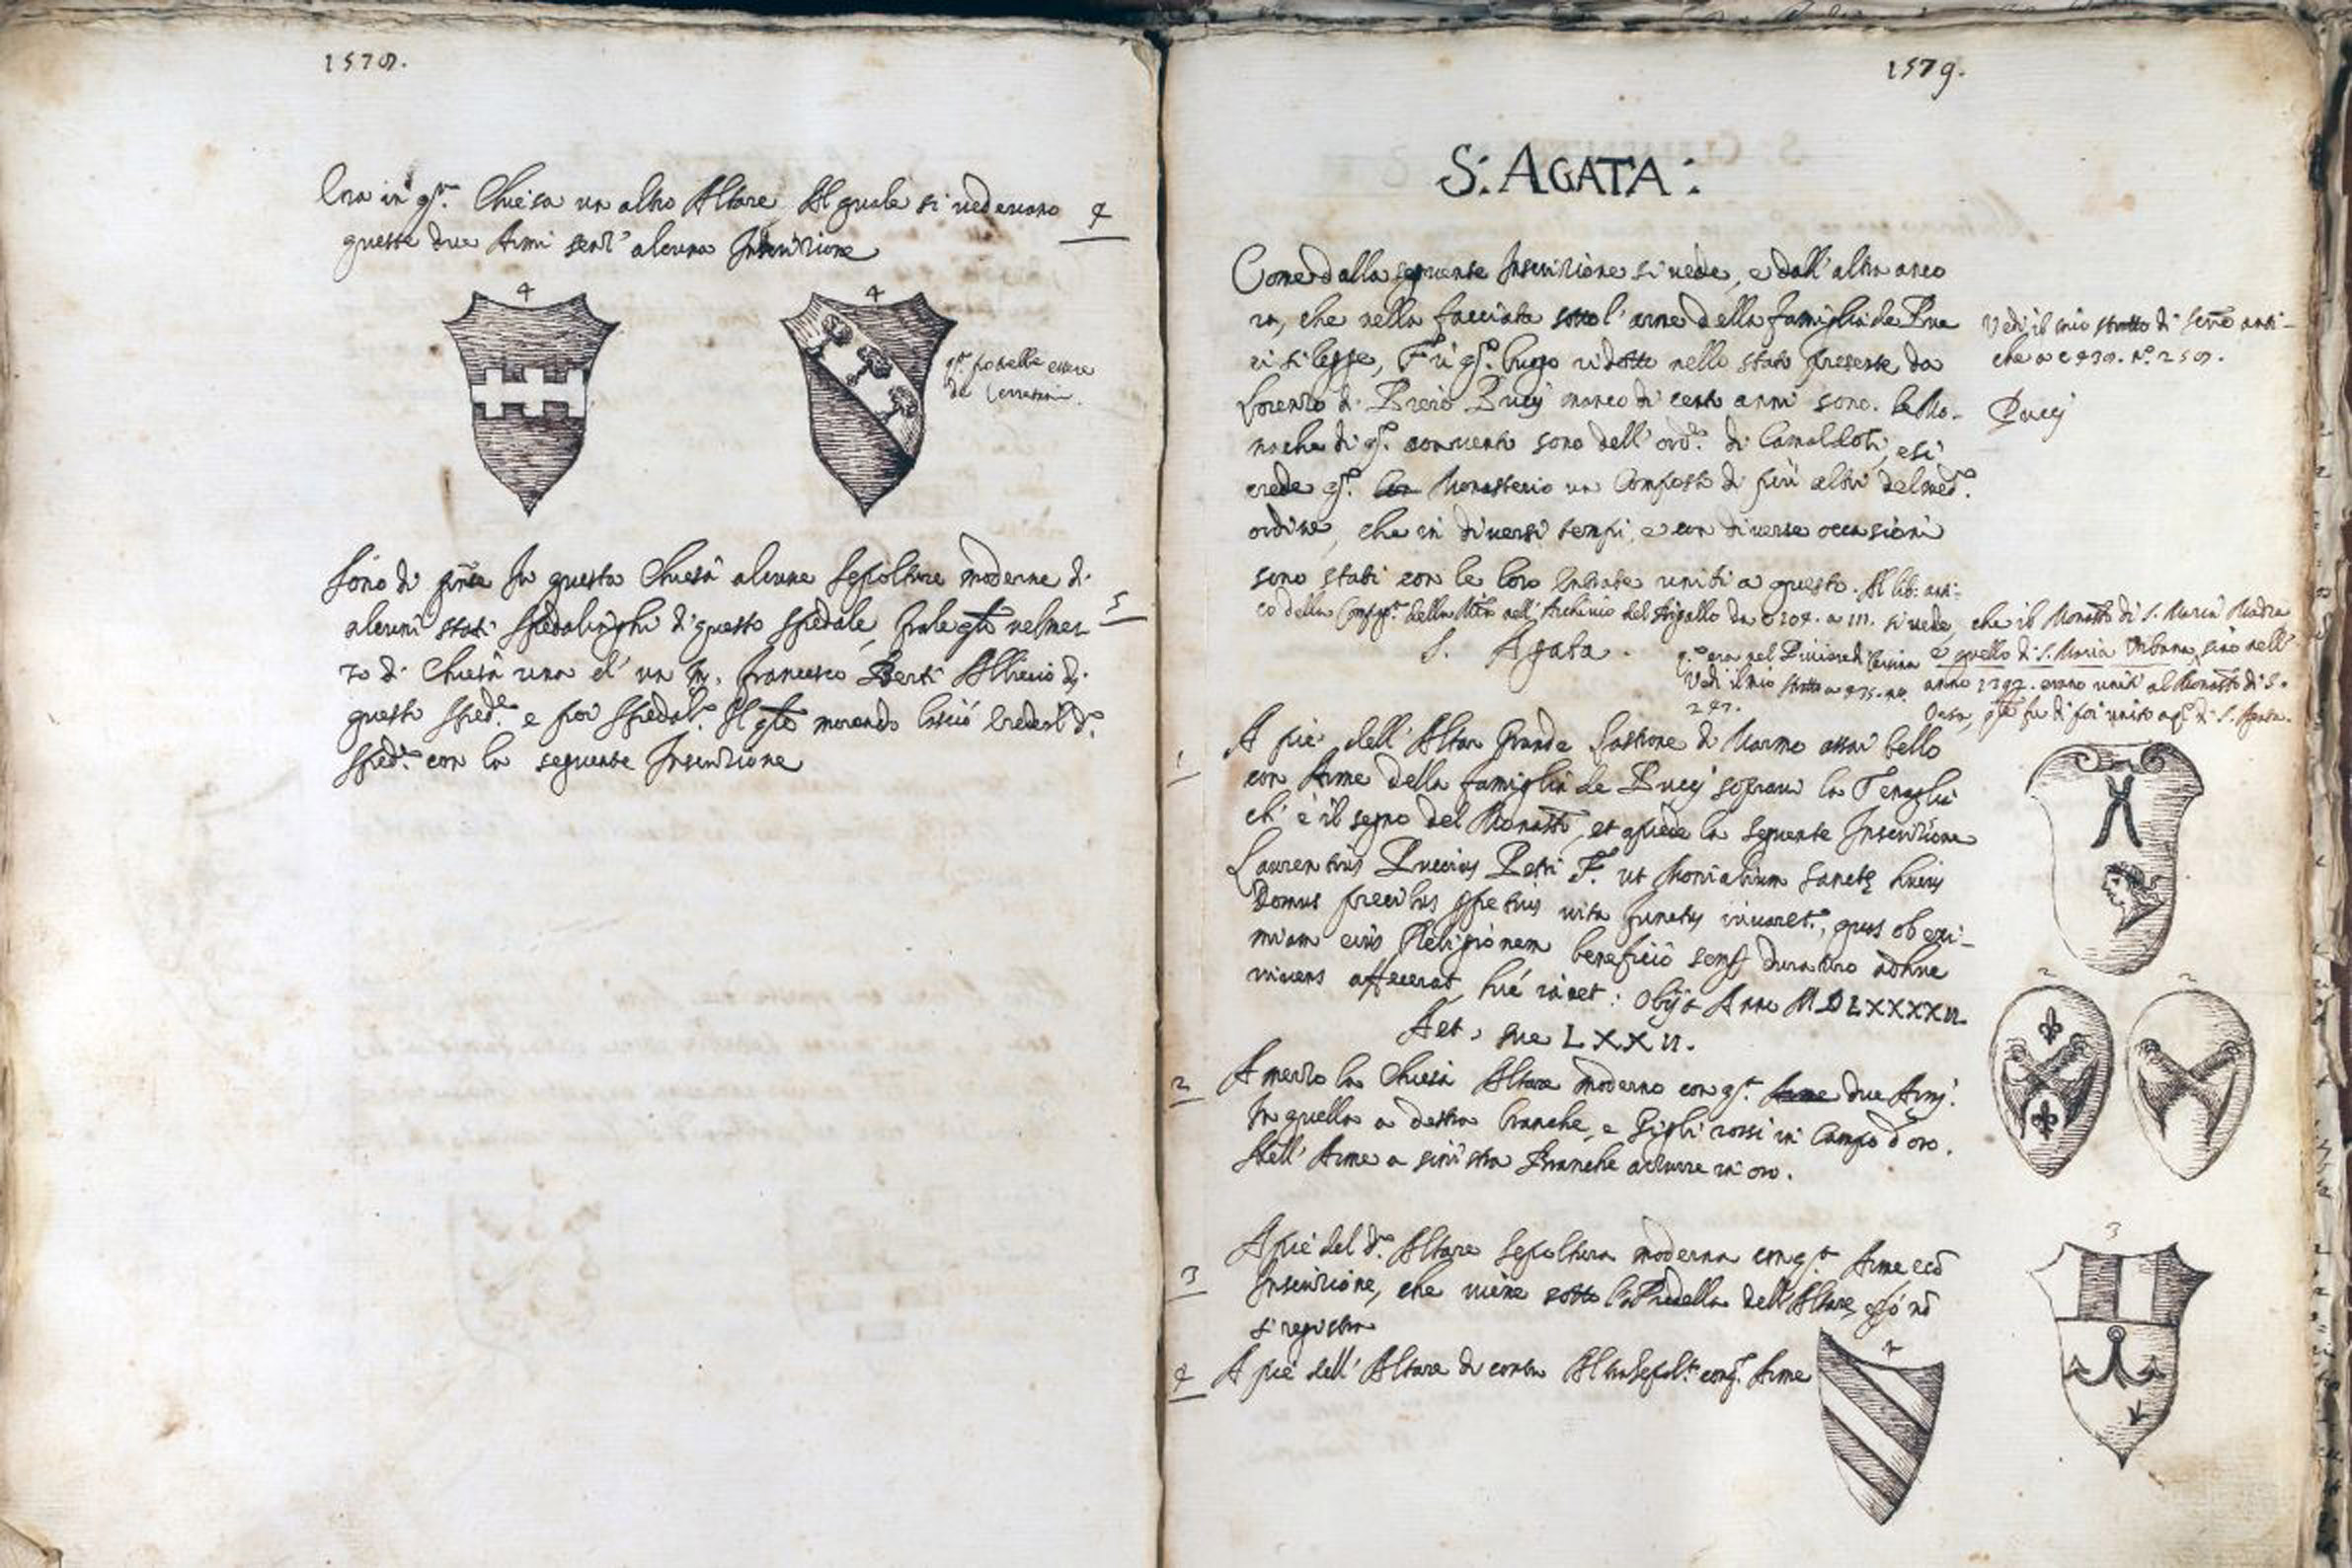 1578.
Era in qs.ta Chiesa un altro Altare Al quale si vedevano
4
queste due Armi senz' alcuna Inscrizione
4
4
qs.ta potrebbe essere
de Cerretani.
Sono di pnte In questa Chiesa alcune Sepolture moderne di
5
alcuni stati Spedalinghi di questo Spedale, frale qte nelmez
zo di Chiesa una d' un M. Francesco Berti Allievo di
questo Sped.e e poi Spedal.o Il qte morendo lasciò Erede il d.o
Sped.e con la seguente Inscrizione
1579.
S: AGATA:
Come dalla seguente Inscrizione si vede, e dall' altra anco
ra, che nella facciata sotto l' arme della famiglia de Puc
ci si legge, Fu qs.o luogo ridotto nello stato presente da
Lorenzo di Piero Pucci manco di cento anni sono. Le Mo-
nache di qs.o convento sono dell' ord.e di Camaldoli, e si
crede qs.o Monasterio un Composto di più altri del med.o
ordine, che in diversi tempi, e con diverse occasioni
sono stati con le loro Entrate uniti a questo. Al lib: anti-
co della Comp.a della Mis.a nell' Archivio del Bigallo da c 104. a 111. si vede, che il Monastº di S. Maria
e quello di S. Maria Urbana, sino nell'
anno erano uniti al Monastº di S.
Vedi il mio stratto di anti-
che a c 438. Nº. 258.
Pucci
S. Agata.
Vedi il mio stratto a 435. nº.
247.
1
A pie' dell' Altar Grande Lastrone di Marmo assai bello
con Arme della famiglia de Pucci sopravi la Tenaglia
ch' è il segno del Monastº, et apiede la seguente Inscrizione
Laurentius Puccius Petri F. ut Monialium Sanctę huius
Domus precibus vita functus iuvaret.r, quas ob exi-
miam eius Religionem beneficio semp duraturo adhuc
vivens affecerat, hic iacet: Obijt Anno MDLXXXXII
Aet, sue LXXII.
2
A mezzo la Chiesa Altare moderno con qs.te due Armi.
In quella a destra branche, e Gigli rossi in Campo d'oro.
Nell' Arme a sinistra Branche azzurre in oro.
2
2
3
Apie del d.o Altare Sepoltura moderna con qs.ta Arme e cō
Inscrizione, che viene sotto la Predella dell' Altare, e pò nō
si registra
3
4
A pie' dell' Altare di contra Altra Sepolt.a con qs.ta Arme
4